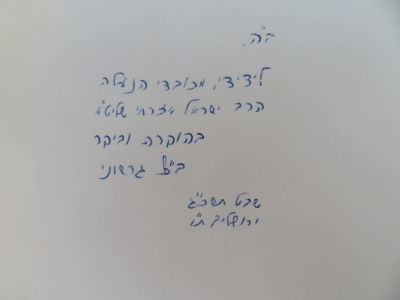 ב"ה.
לידידי, מכובדי הנעלה
הרב ישראל מזרחי שליט"א
בהוקרה וביקר
ב"צ גרשוני
שבט תשכ"ג
ירושלים ת"ו